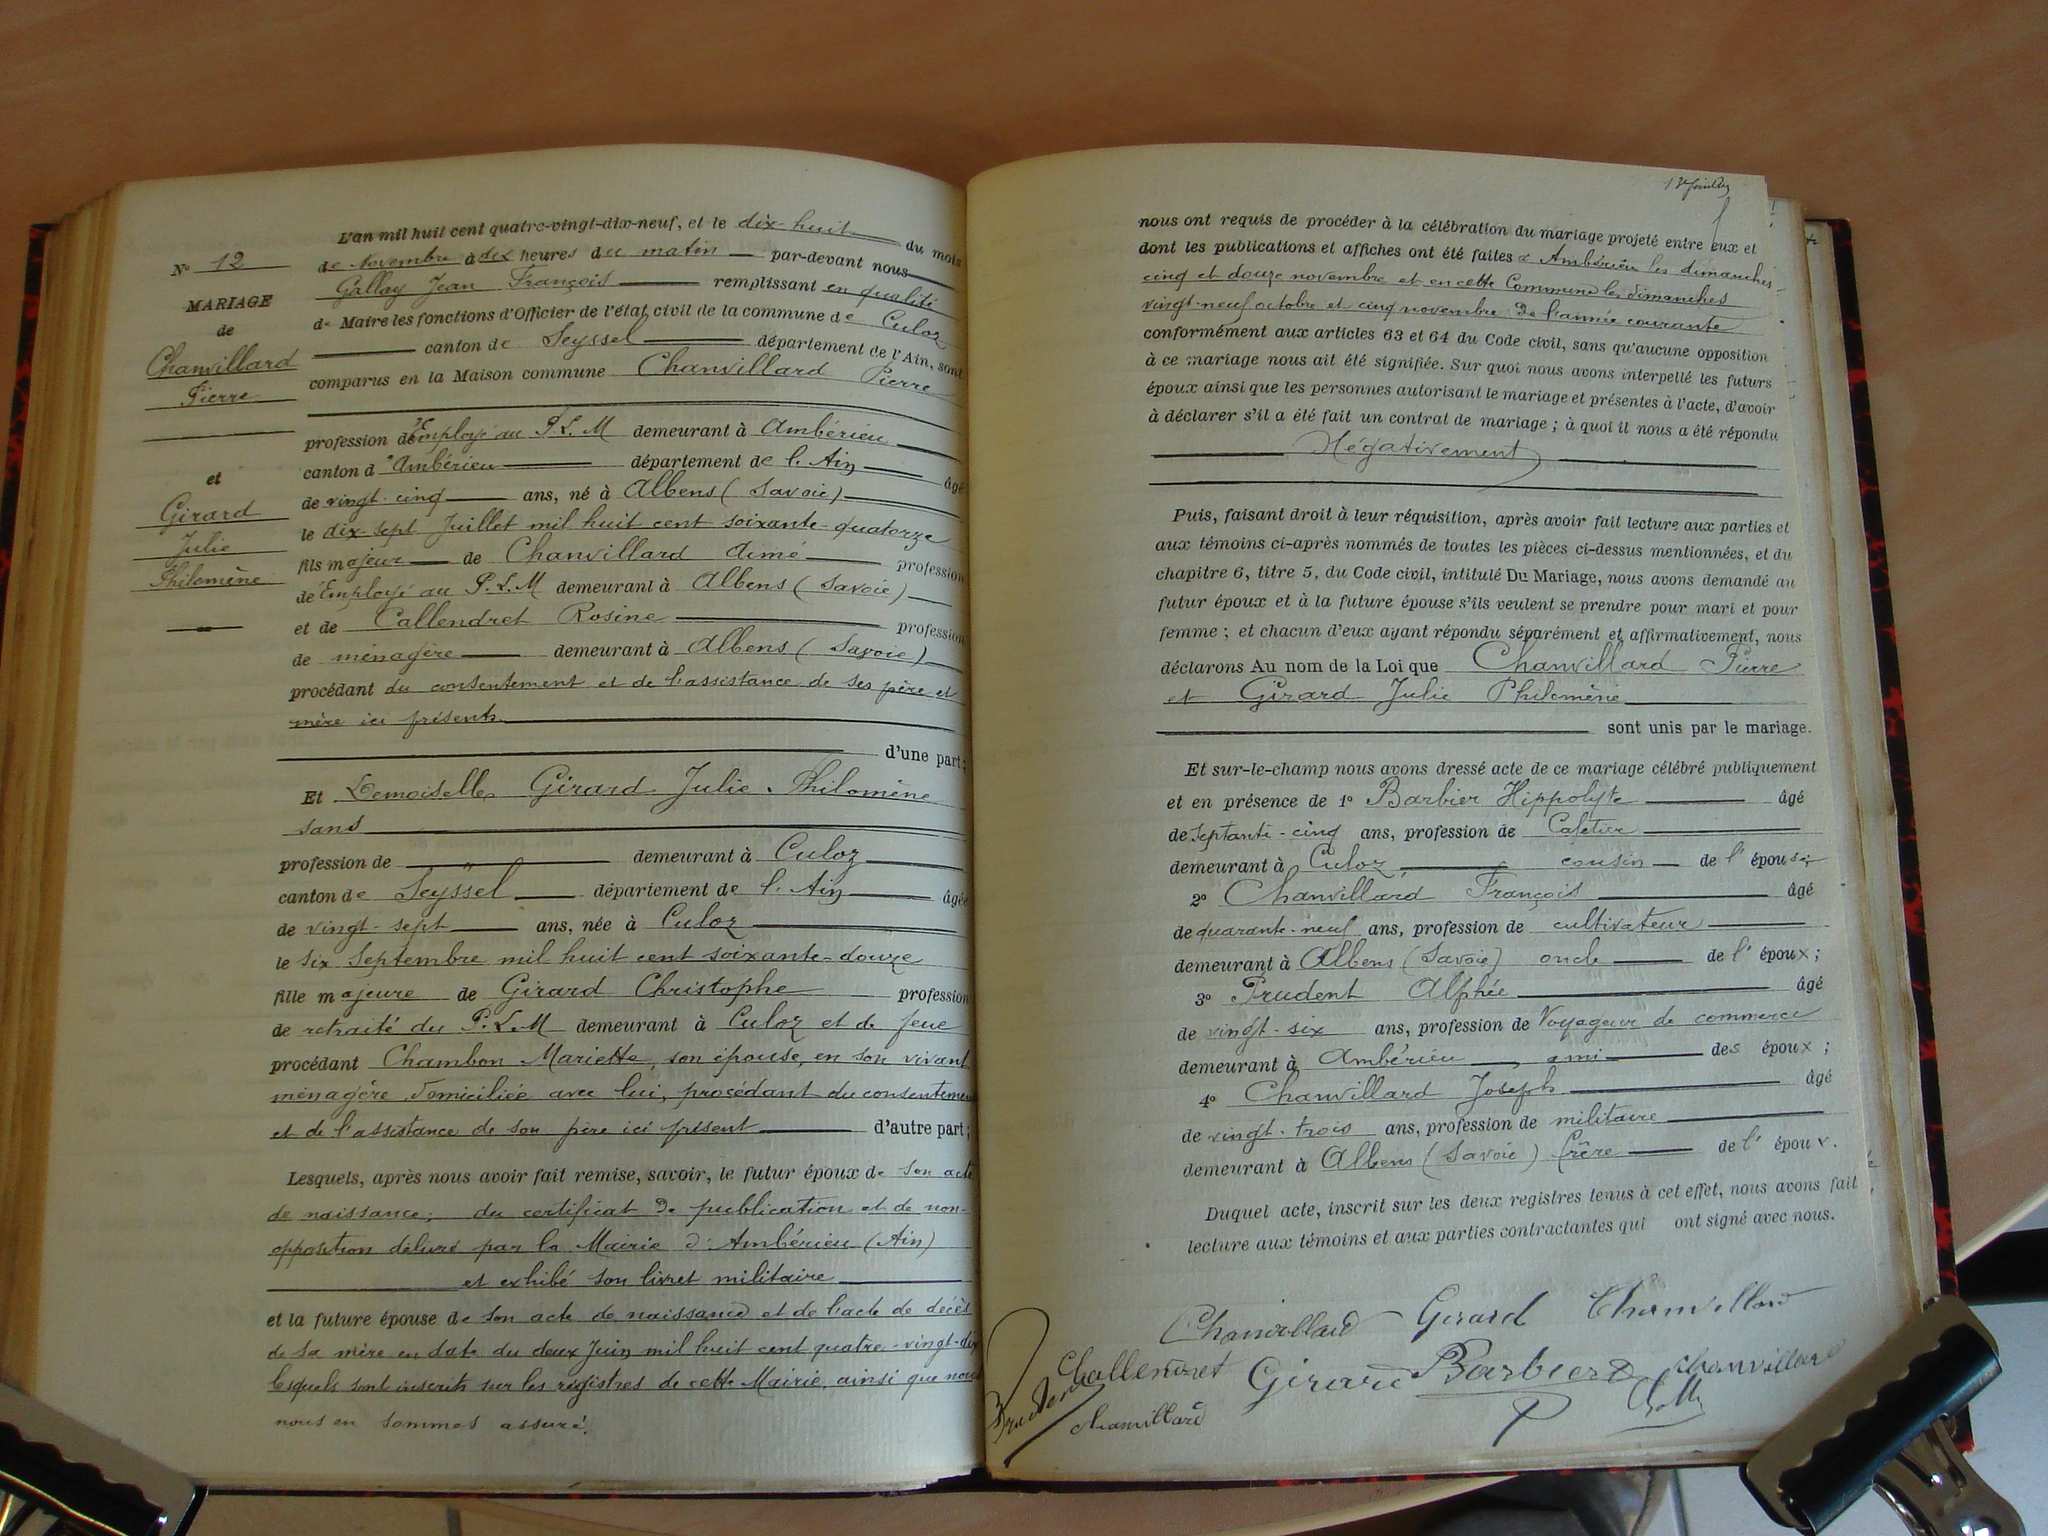 N° 12
MARIAGE
de
Chanvillard
Pierre
et
Girard
Julie
Philomène
L'an mil huit cent quatre-vingt-dix-neuf, et le dix-huit du mois
de Novembre à dix heures du matin par-devant nous
Gallay Jean François remplissant en qualité
de Maire les fonctions d'Officier de l'état civil de la commune de Culoz
canton de Seyssel département de l'Ain, sont
comparus en la Maison commune Chanvillard Pierre
profession d'Employé au P.L.M demeurant à Ambérieu
canton d'Ambérieu département de l'Ain âgé
de vingt-cinq ans, né à Albens (Savoie)
le dix-sept Juillet mil huit cent soixante-quatorze
fils majeur de Chanvillard Aimé profession
d'Employé au P.L.M demeurant à Albens (Savoie)
et de Callendret Rosine profession
de ménagère demeurant à Albens (Savoie)
procédant du consentement et de l'assistance de ses père et
mère ici présents
d'une part;
Et Demoiselle Girard Julie Philomène
sans
profession de " demeurant à Culoz
canton de Seyssel département de l'Ain âgée
de vingt-sept ans, née à Culoz
le six Septembre mil huit cent soixante-douze
fille majeure de Girard Christophe profession
de retraité du P.L.M demeurant à Culoz et de feue
procédant Chambon Mariette, son épouse, en son vivant
ménagère domiciliée avec lui, procédant du consentement
et de l'assistance de son père ici présent d'autre part;
Lesquels, après nous avoir fait remise, savoir, le futur époux de son acte
de naissance; du certificat de publication et de non-
opposition délivré par la Mairie d'Ambérieu (Ain)
et exhibé son livret militaire
et la future épouse de son acte de naissance et de l'acte de décès
de sa mère en date du deux Juin mil huit cent quatre-vingt-dix
lesquels sont inscrits sur les registres de cette Mairie, ainsi que nous
nous en sommes assuré.
nous ont requis de procéder à la célébration du mariage projeté entre eux et
dont les publications et affiches ont été faites à Ambérieu les dimanches
cinq et douze novembre et en cette Commune les dimanches
vingt-neuf octobre et cinq novembre de l'année courante
conformément aux articles 63 et 64 du Code civil, sans qu'aucune opposition
à ce mariage nous ait été signifiée. Sur quoi nous avons interpellé les futurs
époux ainsi que les personnes autorisant le mariage et présentes à l'acte, d'avoir
à déclarer s'il a été fait un contrat de mariage; à quoi il nous a été répondu
Négativement
Puis, faisant droit à leur réquisition, après avoir fait lecture aux parties et
aux témoins ci-après nommés de toutes les pièces ci-dessus mentionnées, et du
chapitre 6, titre 5, du Code civil, intitulé Du Mariage, nous avons demandé au
futur époux et à la future épouse s'ils veulent se prendre pour mari et pour
femme; et chacun d'eux ayant répondu séparément et affirmativement, nous
déclarons Au nom de la Loi que Chanvillard Pierre
et Girard Julie Philomène
sont unis par le mariage.
Et sur-le-champ nous avons dressé acte de ce mariage célébré publiquement
et en présence de 1° Barbier Hippolyte âgé
de septante-cinq ans, profession de Cafetier
demeurant à Culoz cousin de l'épouse;
2° Chanvillard François âgé
de quarante-neuf ans, profession de cultivateur
demeurant à Albens (Savoie) oncle de l'époux;
3° Prudent Alphée âgé
de vingt-six ans, profession de Voyageur de commerce
demeurant à Ambérieu ami des époux;
4° Chanvillard Joseph âgé
de vingt-trois ans, profession de militaire
demeurant à Albens (Savoie) frère de l'époux.
Duquel acte, inscrit sur les deux registres tenus à cet effet, nous avons fait
lecture aux témoins et aux parties contractantes qui ont signé avec nous.
Chanvillard Girard Chanvillard
Challendret Girard Barbier Chanvillard
Prudent Chanvillard